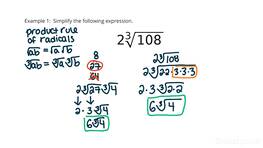 Example 1: Simplify the following expression.
2∛108
product rule
of radicals
√ab = √a√b
∛ab = ∛a∛b
8
27
64
2∛27∛4
2 · 3∛4
6∛4
2∛108
2∛2·2·3·3·3
2·3∛2·2
6∛4